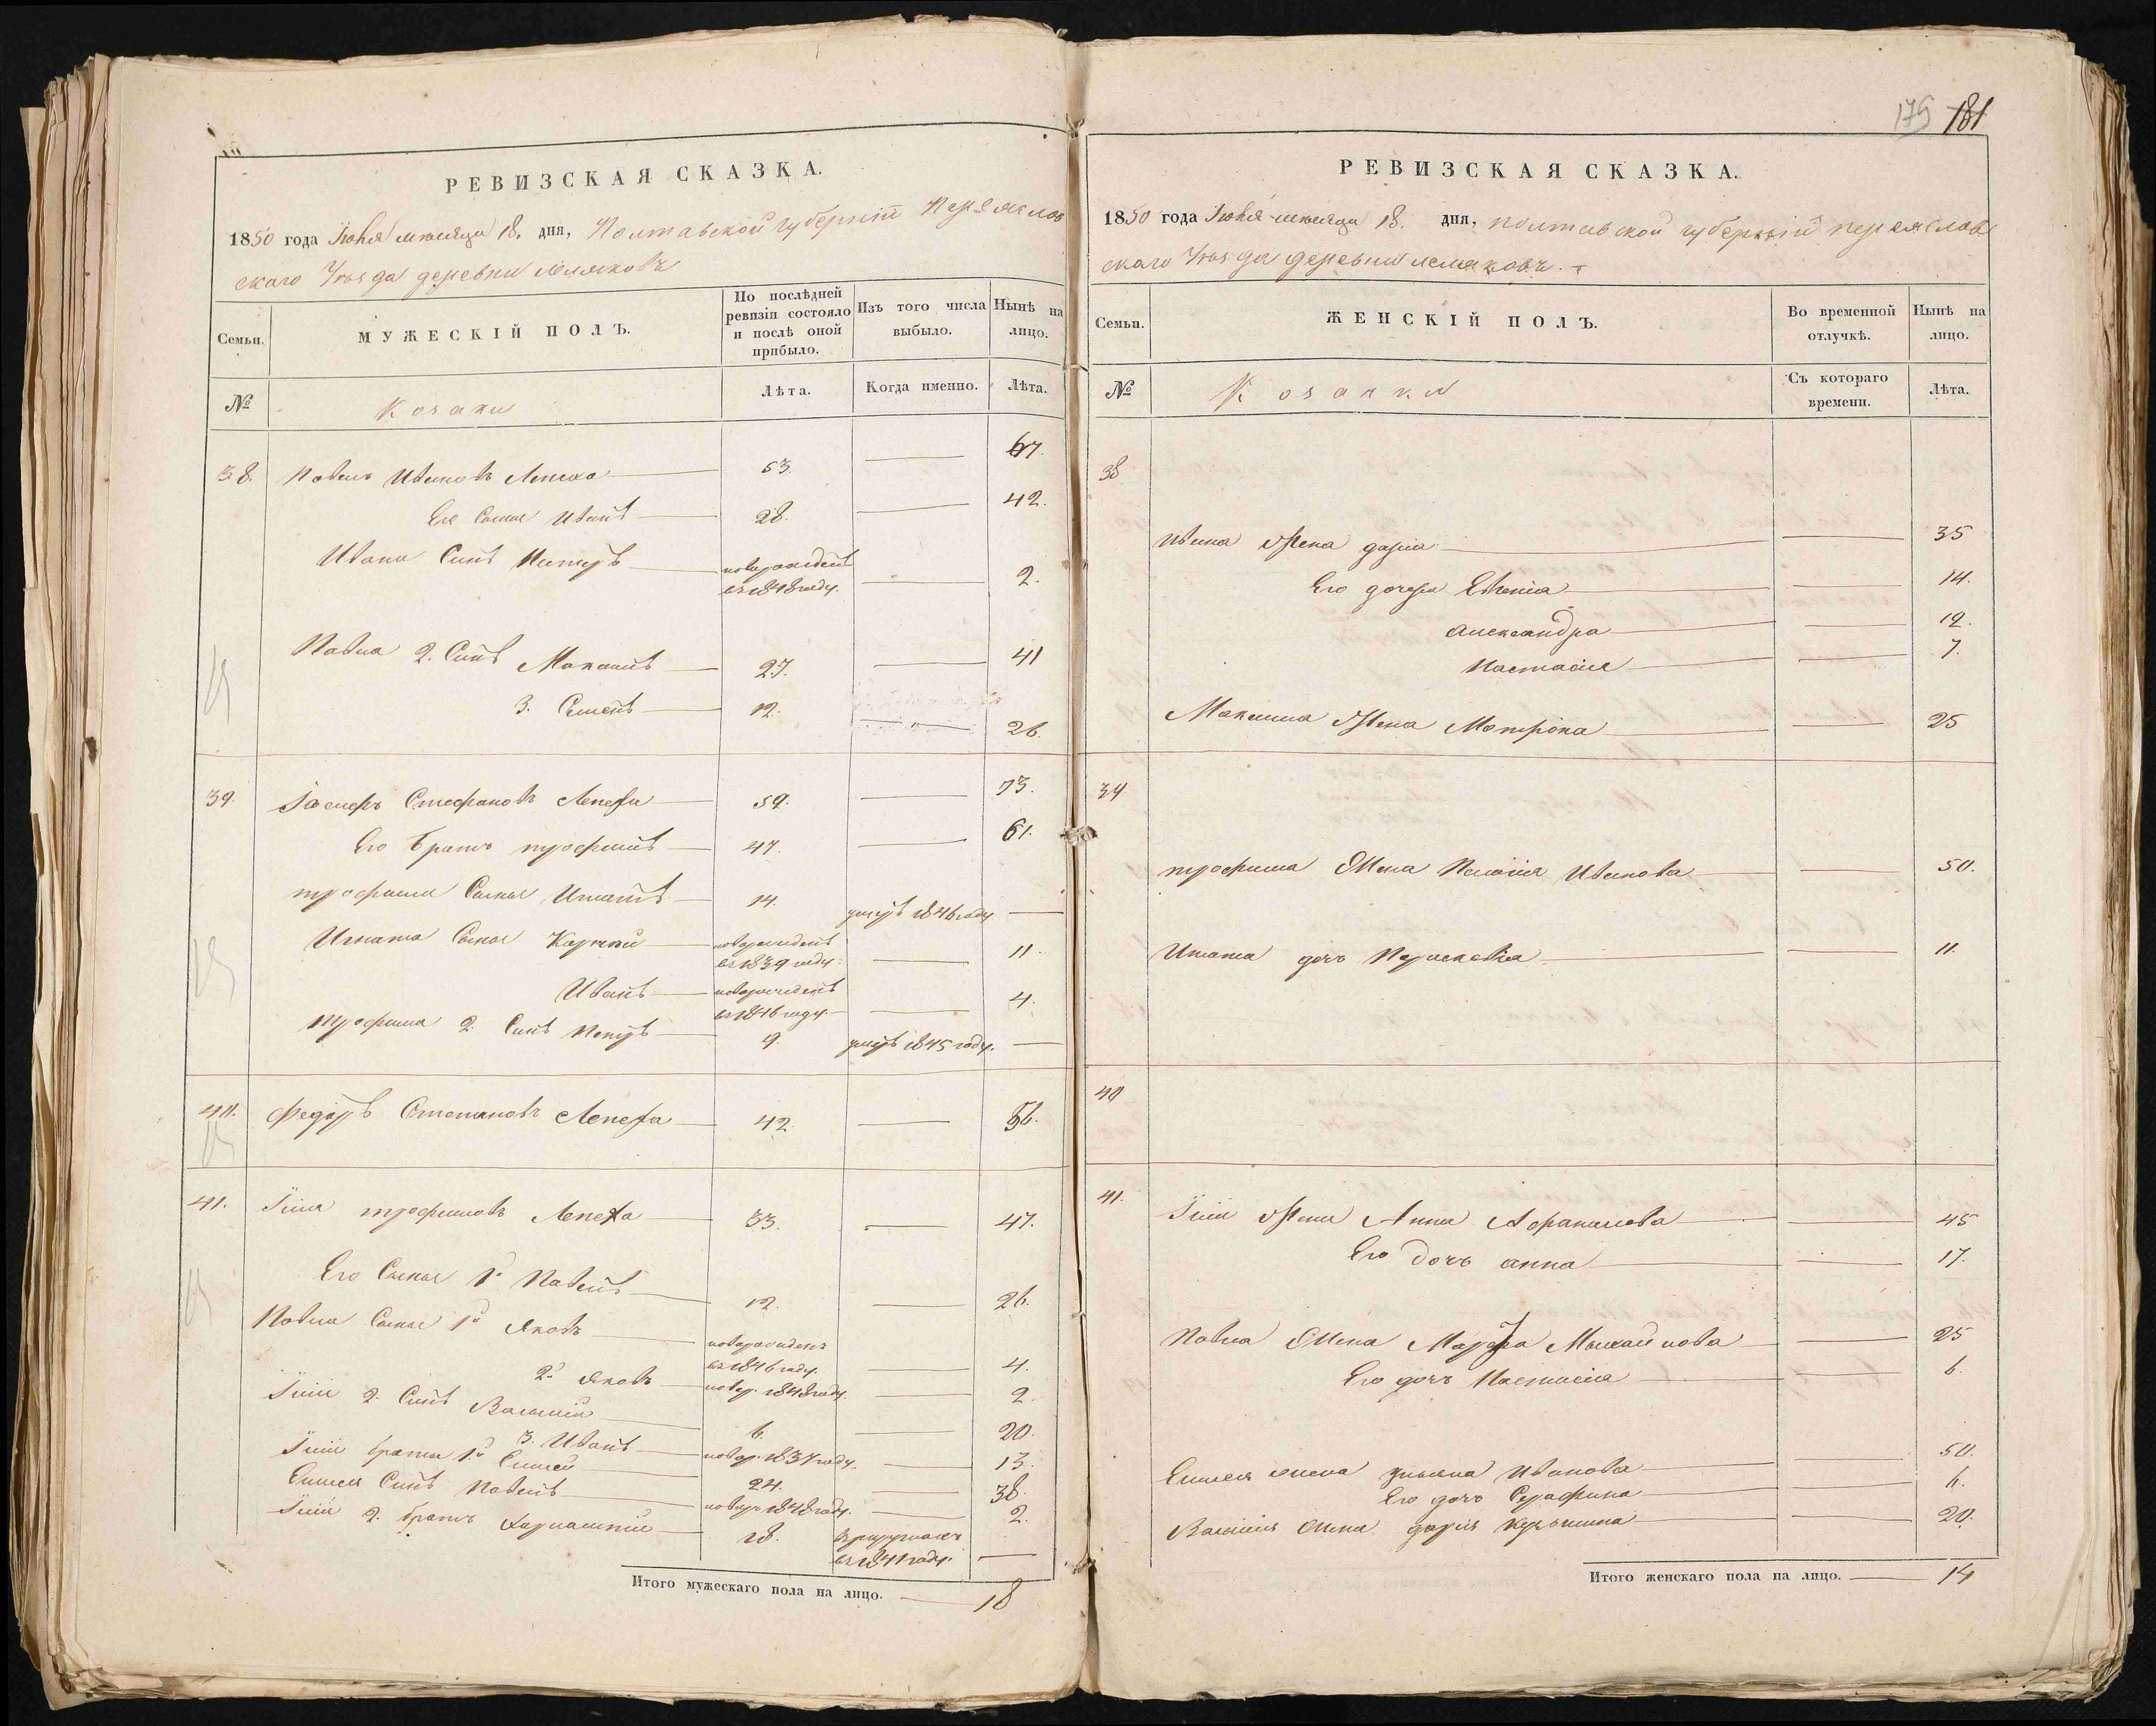 РЕВИЗСКАЯ СКАЗКА.
1850 года Іюня месяца 18. дня, Полтавской губерніи Переяслов
скаго Уѣзда деревни Лемяковъ
Семьи.
МУЖЕСКІЙ ПОЛЪ.
По послѣдней ревизіи состояло и послѣ оной прибыло.
Изъ того числа выбыло.
Нынѣ на лицо.
№
Козаки
Лѣта.
Когда именно.
Лѣта.
38. Павелъ Ивановъ Лепеха 53. 67.
Его Сынъ Иванъ 28. 42.
Ивана Синъ Петръ новорожденъ въ 1848 году. 2.
Павла 2. Синъ Максимъ 27. 41
3. Семенъ 12. 26.
39. Іосифъ Стефановъ Лепеха 59. 73.
Его братъ трофимъ 47. 61.
трофима Сынъ Игнатъ 14. умеръ 1846 году
Игната Сынъ Карпъ новорожденъ въ 1839 году. 11.
Иванъ новорожденъ въ 1846 году. 4.
трофима 2. Синъ Петръ 9. умеръ 1845 году.
40. Федоръ Степановъ Лепеха 42. 56.
41. трофимовъ Лепеха 33. 47.
Его Сынъ 1й Павелъ 12. 26.
Павла Сынъ 1й Яковъ новорожденъ въ 1846 году. 4.
2й Яковъ новор. 1848 году. 2.
2. Синъ Василій 6. 20.
3. Иванъ новор. 1837 году. 13.
братъ 1й Елисей 24. 38.
Елисея Синъ Павелъ новор. 1848 году. 2.
2. братъ Харлампій 18. въ рекрутахъ въ 1841 году.
Итого мужескаго пола на лицо. 18
179 181
РЕВИЗСКАЯ СКАЗКА.
1850 года Іюня месяца 18. дня, полтавской губерніи переяслов
скаго Уѣзда деревни лемяковъ.
Семьи.
ЖЕНСКІЙ ПОЛЪ.
Во временной отлучкѣ.
Нынѣ на лицо.
№
Козачки
Съ котораго времени.
Лѣта.
38
Ивана Жена дарія 35
Его дочери Евгенія 14.
александра 12.
Настасія 7.
Максима Жена Мотрона 25
39
трофима Жена Пелагія Иванова 50.
Игната дочь Параскевія 11.
40
41. Жена Анна Афанасіева 45
Его дочь анна 17.
Павла Жена Марфа Михайлова 25
Его дочь Настасія 6.
Елисея жена ульяна Иванова 50.
Его дочь Серафима 6.
Василія Жена дарія Кузьмина 20.
Итого женскаго пола на лицо. 14